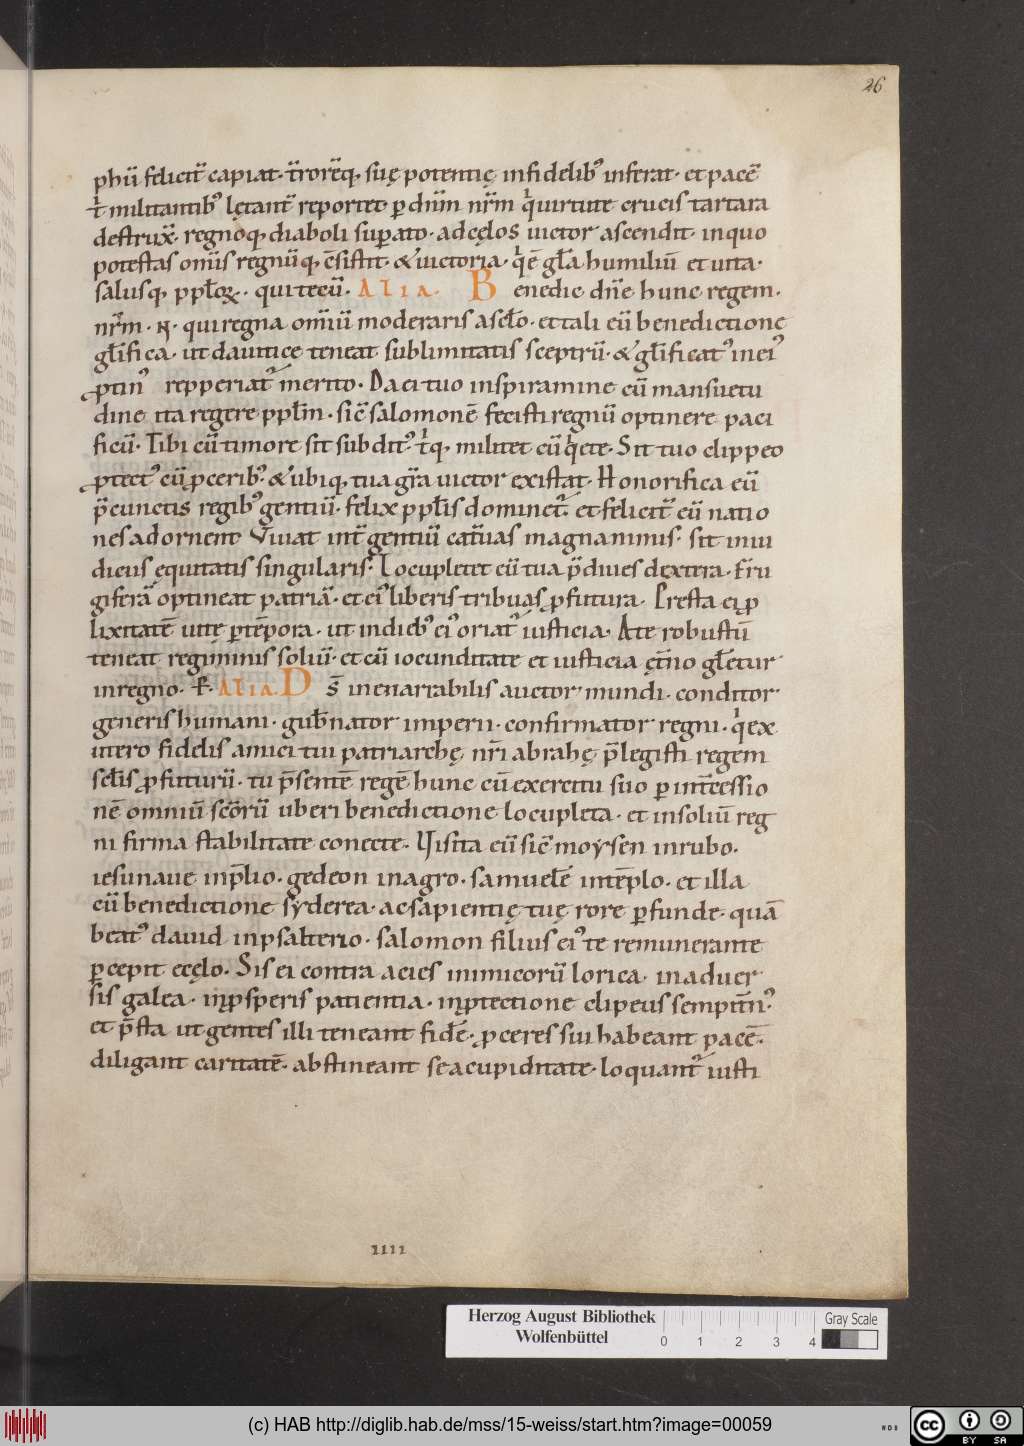 26
phū feliciť capiat· t̄rorēq, suę potentię infidelib᾿ inferat· et pacē
t̄ militantib᾿ lętant̄ reportet· ꝑ dn̄m nr̄m q̇ uirtute crucis tartara
destrux̄· regnoq, diaboli suꝑato· ad cęlos uictor ascendit· in quo
potestas om̄is regnūq, c̄sistit· & uictoria· q̇ ē gl̄a humiliū et uita·
salusq, ppl̄oꝝ· qui tecū· Alia· Benedic dn̄e hunc regem·
nr̄m· N· qui regna om̄iū moderaris a sc̄lo· et tali eū benedictione
gl̄ifica· ut dauitice teneat sublimitatis sceptrū· & gl̄ificat᾿ in ei᾿
ꝓtin᾿ repperiat᾿ merito· Da ei tuo inspiramine cū mansuetu
dine ita regere ppl̄m· sic̄ salomonē fecisti regnū optinere paci
ficū· Tibi cū timore sit subdit᾿ t̄q, militet cū q̇ete· Sit tuo clippeo
ꝓtect᾿ cū ꝓcerib᾿· & ubiq, tua gr̄a uictor existat· Honorifica eū
p̄ cunctis regib᾿ gentiū· felix ppl̄is dominet᾿· et feliciť eū natio
nes adornent Viuat int̄ gentiū cat̄uas magnanimus· sit in iu
diciis ęquitatis singularis· Locupletet eū tua p̄diues dextera· fru
giferā optineat patriā· et ei᾿ liberis tribuas ꝓfutura· Presta ei ꝓ
lixitatē uitę ꝑ tēpora· ut in dieb᾿ ei᾿ oriat᾿ iusticia· A te robustū
teneat regiminis soliū· et cū iocunditate et iusticia ęt̄no gl̄etur
in regno· P̄· Alia· Ds̄ inenarrabilis auctor mundi· conditor
generis humani· gub̄nator imperii· confirmator regni· q̇ ex
utero fidelis amici tui patriarchę nr̄i abrahę p̄legisti regem
sc̄lis ꝓfuturū· tu p̄sentē regē hunc cū exercitu suo ꝑ int̄cessio
nē omniū sc̄orū uberi benedictione locupleta· et in soliū reg
ni firma stabilitate conecte· Visita eū sic̄ moysen in rubo·
iesu naue in p̄lio· gedeon in agro· samuelē in tēplo· et illa
eū benedictione syderea· ac sapientię tuę rore ꝑfunde· quā
beat᾿ dauid in psalterio· salomon filius ei᾿ te remunerante
ꝑcepit e cęlo· Sis ei contra acies inimicorū lorica· in aduer
sis galea· in ꝓsperis patientia· in ꝓtectione clipeus sempit̄n᾿·
et p̄sta ut gentes illi teneant fidē· ꝓceres sui habeant pacē·
diligant caritatē· abstineant se a cupiditate· loquant᾿ iusti
IIII
Herzog August Bibliothek
Wolfenbüttel
0 1 2 3 4
Gray Scale
(c) HAB http://diglib.hab.de/mss/15-weiss/start.htm?image=00059
cc BY SA